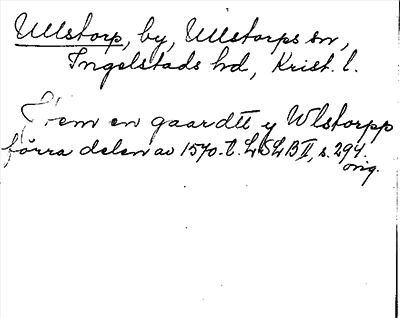 Ullstorp, by, Ullstorps sn,
Ingelstads hd, Krist. l.
Jtem en gaardtt y Wlstorpp
förra delen av 1570-t. LSLB II, s. 294.
orig.